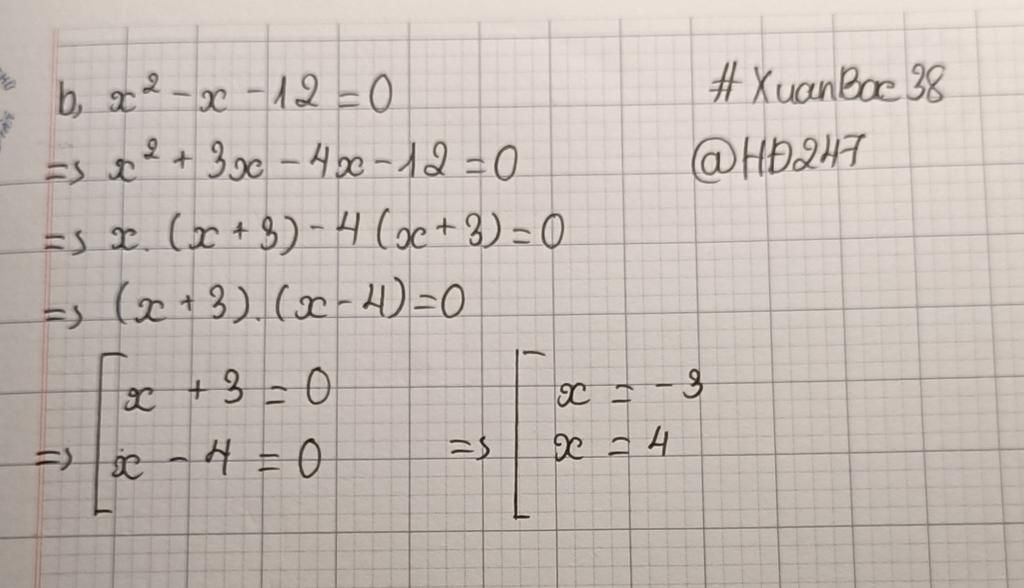 b, x² - x - 12 = 0
# XuanBac 38
=> x² + 3x - 4x - 12 = 0
@HD247
=> x. (x + 3) - 4 (x + 3) = 0
=> (x + 3). (x - 4) = 0
=> [ x + 3 = 0
x - 4 = 0
=> [ x = -3
x = 4